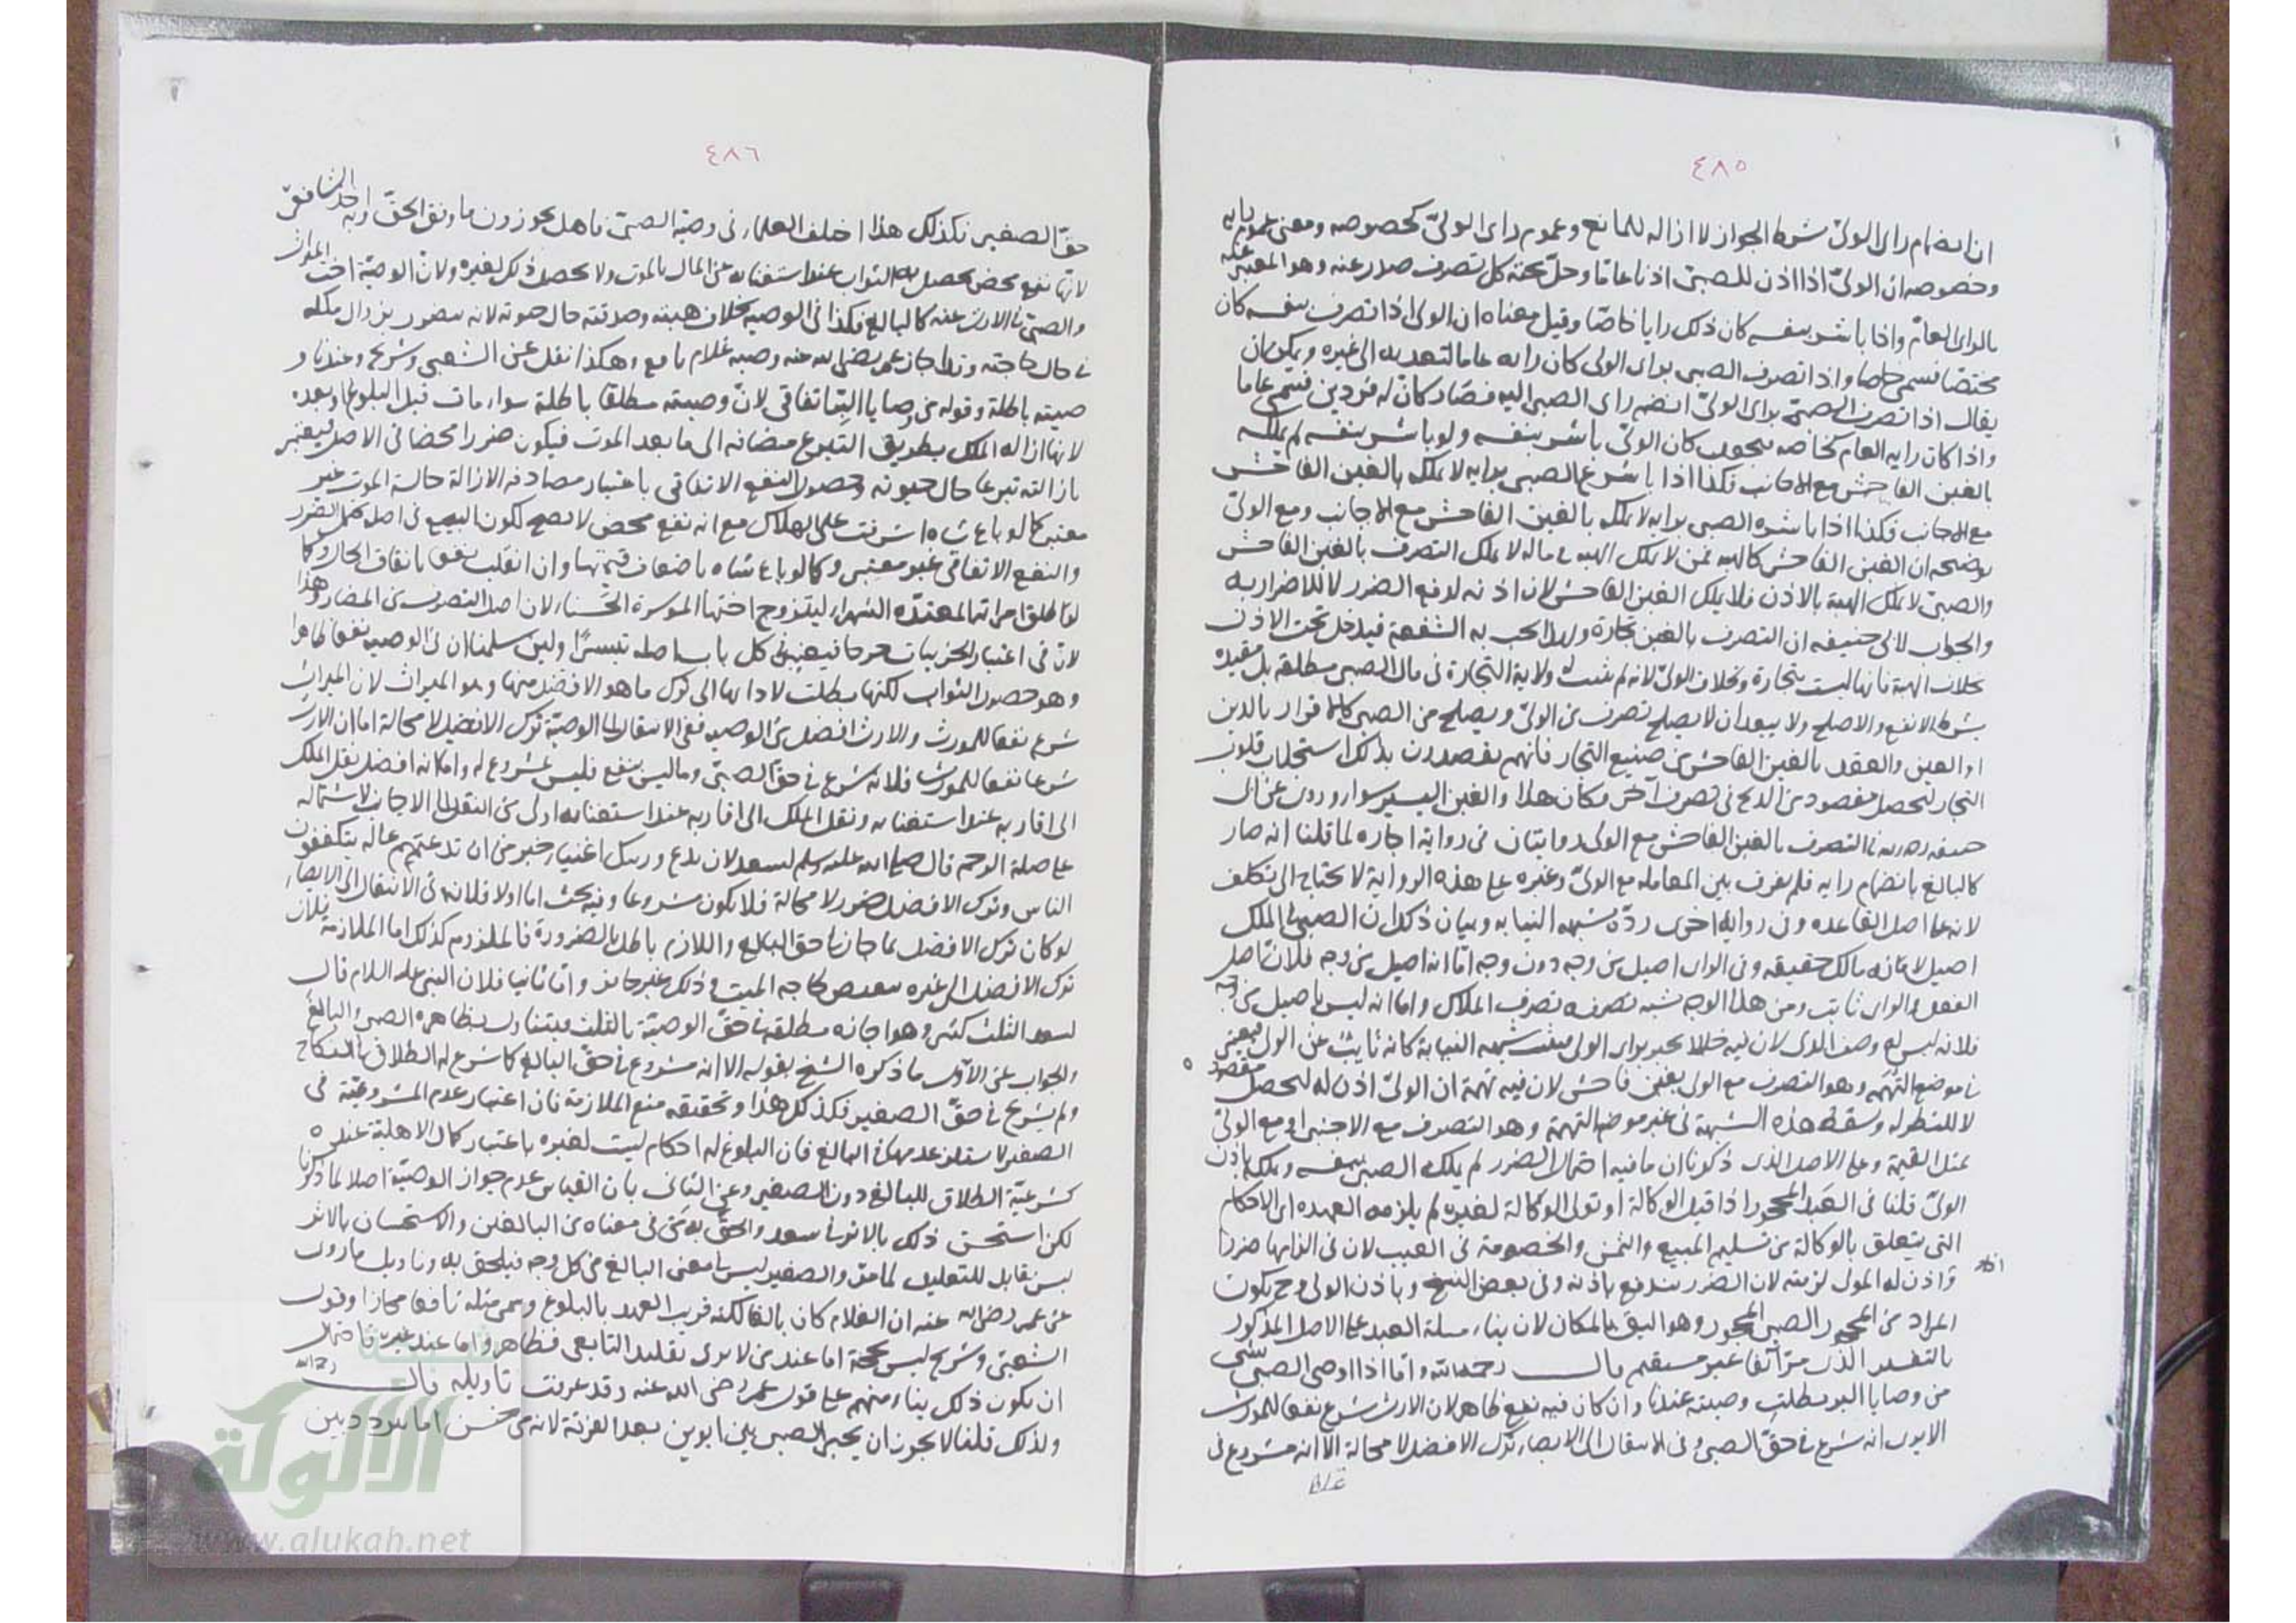 ٤٨٥
ان انضمام راى الولىّ شرط الجواز لا ازاله للمانع وعموم راى الولىّ كخصوصه ومعنى عموم رايه
وخصوصه ان الولىّ اذا اذن للصبى اذنا عامّا وحلّ تحته كل تصرف صدر عنه وهو المعبر عنه
بالراى العامّ واذا باشر بنفسه كان ذلك رايا خاصّا وقيل معناه ان الولى اذا تصرف بنفسه كان
مختصّا فسمى خاصا واذا تصرف الصبى براى الولى كان رايه عاما لتعديه الى غيره ويمكن ان
يقال اذا تصرف الصبىّ براى الولىّ انضم راى الصبى اليه فصار كانّ له فردين فسمى عاما
واذا كان رايه العام كخاصه يجعل كان الولىّ باشر بنفسه ولو باشر بنفسه لم يملكه
بالغبن الفاحش مع الاجانب فكذا اذا باشر الصبى برايه لا يملكه بالغبن الفاحش
مع الاجانب فكذا اذا باشره الصبى برايه لا يملكه بالغبن الفاحش مع الاجانب ومع الولىّ
يوضحه ان الغبن الفاحش كالهبه فمن لا يملك الهبه فى ماله لا يملك التصرف بالغبن الفاحش
والصبى لا يملك الهبة بالاذن فلا يملك الغبن الفاحش لان اذنه لدفع الضرر لا للاضرار به
والجواب لابى حنيفه ان التصرف بالغبن تجارة ولهذا يجب به الشفعة فيدخل تحت الاذن
بخلاف الهبة فانها ليست بتجارة وبخلاف الولىّ لانه لم يثبت له ولاية التجارة فى مال الصبى مطلقه بل مقيده
بشرط الانفع والاصلح ولا يبعد ان لا يصلح تصرف من الولىّ ويصلح من الصبى كالاقرار بالدين
او العين والعقد بالغبن الفاحش من صنيع التجار فانهم يقصدون بذلك استجلاب قلوب
التجار ليحصل مقصودهم من الربح فى تصرف آخر فكان هذا والغبن اليسير سواء وروى عن ابى
حنيفه رحمه الله فى التصرف بالغبن الفاحش مع الولى روايتان فى رواية اجازه لما قلنا انه صار
كالبالغ بانضمام رايه فلم يفرق بين المعامله مع الولىّ وغيره على هذه الرواية لا يحتاج الى تكلف
لانه على اصل القاعده وفى رواية اخرى ردّه بشبهه النيابه وبيان ذلك ان الصبى فى الملك
اصيل لانه مالك حقيقه وفى الراى اصيل من وجه دون وجه امّا انه اصيل من وجه فلان اصل
العقل والراى ثابت ومن هذا الوجه شبه تصرفه تصرف الملاك واما انه ليس باصيل من وجه
فلانه ليس له وصف الراى لان فيه خللا يجبر براى الولى فتثبت شبهه النيابة كانه نائب عن الولى فيعتبر
فى موضع التهمه وهو التصرف مع الولى بغبن فاحش لان فيه تهمة ان الولىّ اذن له ليحصل مقصوده
لا للنظر له وسقط هذه الشبهة فى غير موضع التهمة وهو التصرف مع الاجنبى او مع الولىّ
بمثل القيمة وعلى الاصل الذى ذكرنا ان ما فيه احتمال الضرر لم يملك الصبى بنفسه ويملكه باذن
الولىّ قلنا فى العبد المحجور اذا قبل الوكالة او تولى الوكالة لغيره لم يلزمه العهده اى الاحكام
التى يتعلق بالوكالة من تسليم المبيع والثمن والخصومة فى العيب لان فى الزامها ضررا
واذن له المولى لزمته لان الضرر يندفع باذنه وفى بعض النسخ وباذن الولى وح يكون
المراد من المحجور الصبى المحجور وهو اليق بالمكان لان بناء مسئلة العبد على الاصل المذكور
بالتفسير الذى مرّ آنفا غير مستقيم قال رحمه الله وامّا اذا اوصى الصبى بشىء
من وصايا البر بطلت وصيته عندنا وان كان فيه نفع ظاهر لان الارث شرع نفعا للمورث
الا يرى انه شرع فى حقّ الصبى وفى الانتقال الى الايصاء ترك الافضل لا محالة الا انه مشروع فى
٤٨٦
حقّ الصغير فكذلك هذا اختلف العلماء فى وصية الصبىّ فاهل يجوزون ما وفق الحقّ وبه اخذ الشافعى
لانها نفع محض يحصل به الثواب عند استغنائه عن المال بالموت ولا يحصل ذلك لغيره ولان الوصيّة اخت الميراث
والصبى فى الارث عنه كالبالغ فكذا فى الوصيه بخلاف هبته وصدقته حال حيوته لانه يتضرر بزوال ملكه
فى حال حاجته وقد اجاز عمر رضى الله عنه وصيه غلام يافع وهكذا نقل عن الشعبى وشريح وعندنا و
صيته باطلة وقوله من وصايا البرّ اتفاقى لانّ وصيته مطلقا باطلة سواء مات قبل البلوغ او بعده
لانها ازاله الملك بطريق التبرع مضافه الى ما بعد الموت فيكون ضررا محضا فى الاصل فيعتبر
بازالته تبرعا حال حيوته وحصول النفع الاتفاقى باعتبار مصادفه الازالة حالة الموت غير
معتبر كما لو باع شاه اشرفت على الهلاك مع انه نفع محض لا يصح لكون البيع فى اصله يحتمل الضرر
والنفع الاتفاقى غير معتبر وكما لو باع شاه باضعاف قيمتها وان انقلب نفعا باتفاق الحال وكما
لو طلق امراته المعتده الشوهاء ليتزوج اختها الموسرة الحسناء لان اصل التصرف من المضار وهذا
لان فى اعتبار الجزئيات حرجا فيعتبر كل باب باصله تيسيرًا ولئن سلمنا ان فى الوصيه نفعا ظاهرا
وهو حصول الثواب لكنها بطلت لادائها الى ترك ما هو الافضل منها وهو الميراث لان الميراث
شرع نفعا للمورث والارث افضل من الوصيه ففى الانتقال الى الوصيّة ترك الافضل لا محالة اما ان الارث
شرعا نفعا للمورث فلانه شرع فى حقّ الصبىّ وما ليس بنفع فليس بمشروع له واما انه افضل نقل الملك
الى اقاربه عند استغنائه ونقل الملك الى اقاربه عند استغنائه اولى من النقل الى الاجانب لاشتماله
على صلة الرحم قال صلى الله عليه وسلم لسعد لان تدع ورثتك اغنياء خير من ان تدعهم عالة يتكففون
الناس وترك الافضل ضرر لا محالة فلا يكون مشروعا وفيه بحث اما اولا فلانه فى الانتقال الى الايصاء
لو كان ترك الافضل لما جاز فى حق البالغ واللازم باطل بالضرورة فالملزوم كذلك اما الملازمة فلان
ترك الافضل الى غيره لحاجه الميت وذلك غير جائز وامّا ثانيا فلان النبى عليه السلام قال
لسعد الثلث كثير وهو اجازه مطلقه فى حقّ الوصيّة بالثلث فيتناول بظاهره الصبى والبالغ
والجواب عن الاوّل ما ذكره الشيخ بقوله الا انه مشروع فى حقّ البالغ كما شرع له الطلاق فى النكاح
ولم يشرع فى حقّ الصغير فكذلك هذا وتحقيقه منع الملازمة فان اعتبار عدم المشروعيّة فى
الصغير لا يستلزم عدمها فى البالغ فان البلوغ له احكام ليست لغيره باعتبار كمال الاهلية عنده
كشرعيّة الطلاق للبالغ دون الصغير وعن الثانى بان القياس عدم جواز الوصيّة اصلا لما ذكرنا
لكن استحسن ذلك بالاثر فى سعد والحق به من فى معناه من البالغين والاستحسان بالاثر
ليس بقابل للتعليل لما مرّ والصغير ليس فى معنى البالغ من كل وجه فيلحق به وتاويل ما روى
عن عمر رضى الله عنه ان الغلام كان بالغا لكنه قريب العهد بالبلوغ وسمى مثله يافعا مجازا وقول
الشعبىّ وشريح ليس بحجة اما عند من لا يرى تقليد التابعى فظاهر واما عند غيره فاحتمال
ان يكون ذلك بناء منهم على قول عمر رضى الله عنه وقد عرفت تاويله قال رحمه الله
ولذلك قلنا لا يجوز ان يخير الصبى بين ابوين بعد الفرقة لانه من جنس ما يتردد بين
الألوكة
www.alukah.net